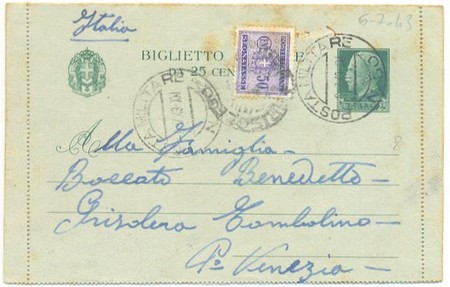 Italia
6-7-43
BIGLIETTO
25 CEN
50
POSTA MILITARE
POSTA MILITARE
8
Alla Famiglia
Boccato Benedetto
Grisolera Tombolino
Po Venezia